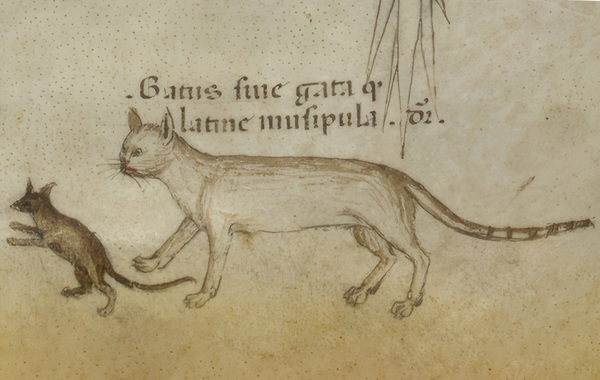 . Gatus siue gata q
latine musipula . dr.